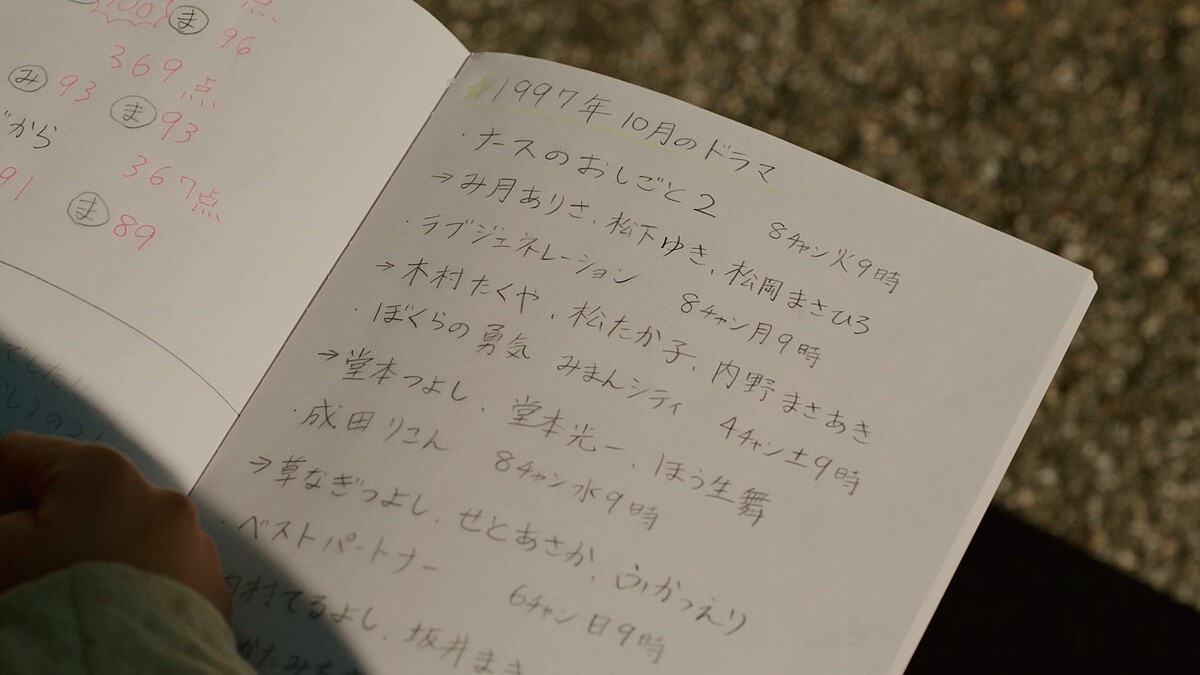 点
100 ま 96
369点
み 93 ま 93
から
367点
91 ま 89
でした!!
1997年10月のドラマ
・ナースのおしごと2 8チャン火9時
→み月ありさ、松下ゆき、松岡まさひろ
・ラブジェネレーション 8チャン月9時
→木村たくや、松たか子、内野まさあき
・ぼくらの勇気 みまんシティ 4チャン土9時
→堂本つよし、堂本光一、ほう生舞
・成田りこん 8チャン水9時
→草なぎつよし、せとあさか、ふかつえり
・ベストパートナー 6チャン日9時
村てるよし、坂井まき
かたみち